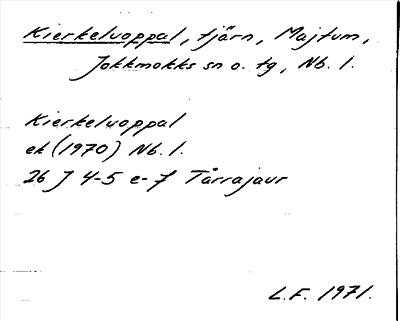 Kierkelvoppal, tjärn, Majtum,
Jokkmokks sn o. tg, Nb. l.
Kierkelvoppal
ek (1970) Nb. l.
26 J 4-5 e-f Tårrajaur
L.F. 1971.